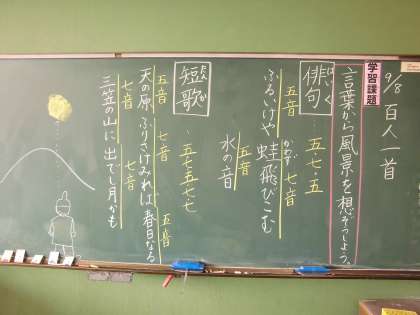 9/8 百人一首
学習課題
言葉から風景を想ぞうしよう。
俳句 はいく
五・七・五
五音 七音
ふるいけや 蛙飛びこむ
かわず
五音
水の音
短歌 たんか
・五・七・五・七・七
五音 七音 五音
天の原 ふりさけみれば 春日なる
七音 七音
三笠の山に 出でし月かも